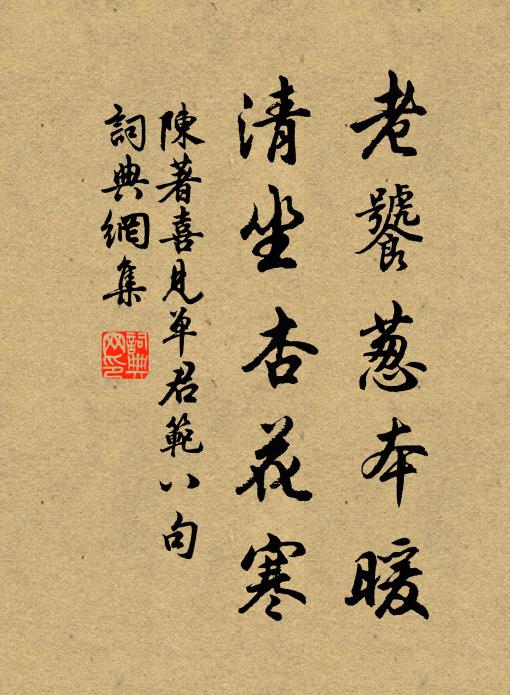 老饕蔥本暖
清坐杏花寒
陳著喜見單君範八句
詞典網集
詞典
网印